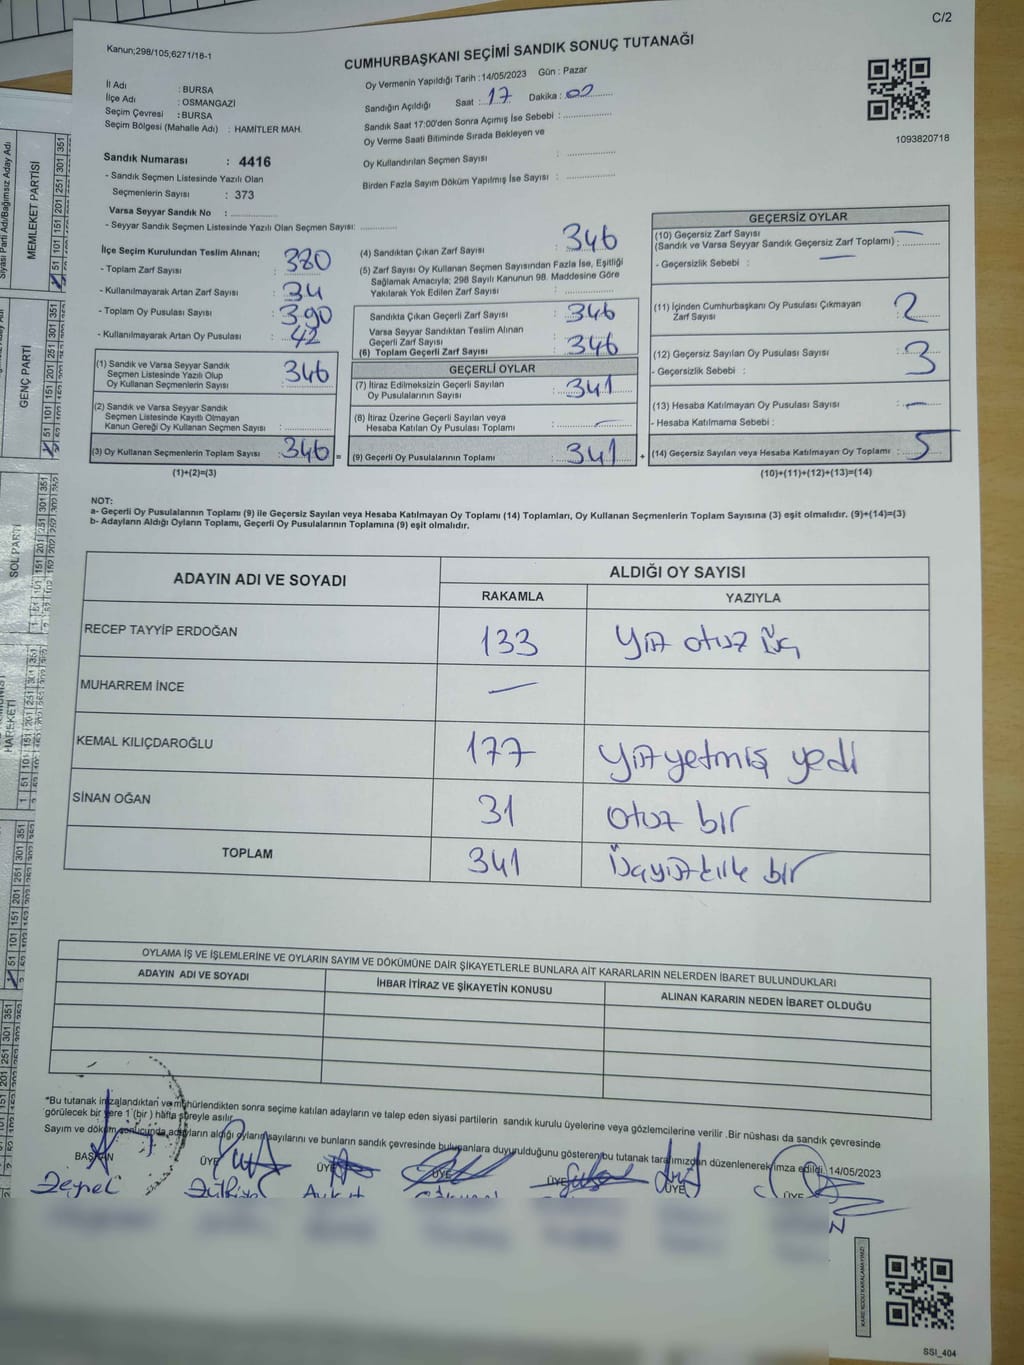 C/2
Kanun;298/105;6271/18-1
CUMHURBAŞKANI SEÇİMİ SANDIK SONUÇ TUTANAĞI
İl Adı : BURSA
İlçe Adı : OSMANGAZİ
Seçim Çevresi : BURSA
Seçim Bölgesi (Mahalle Adı) : HAMİTLER MAH.
Oy Vermenin Yapıldığı Tarih : 14/05/2023 Gün : Pazar
Sandığın Açıldığı Saat : 17 Dakika : 00
Sandık Saat 17:00'den Sonra Açımış İse Sebebi :
Oy Verme Saati Bitiminde Sırada Bekleyen ve
Oy Kullandırılan Seçmen Sayısı :
Birden Fazla Sayım Döküm Yapılmış İse Sayısı :
1093820718
Sandık Numarası : 4416
- Sandık Seçmen Listesinde Yazılı Olan
Seçmenlerin Sayısı : 373
Varsa Seyyar Sandık No :
- Seyyar Sandık Seçmen Listesinde Yazılı Olan Seçmen Sayısı:
İlçe Seçim Kurulundan Teslim Alınan;
- Toplam Zarf Sayısı : 380
- Kullanılmayarak Artan Zarf Sayısı : 34
- Toplam Oy Pusulası Sayısı : 390
- Kullanılmayarak Artan Oy Pusulası : 42
(1) Sandık ve Varsa Seyyar Sandık
Seçmen Listesinde Yazılı Olup
Oy Kullanan Seçmenlerin Sayısı : 346
(2) Sandık ve Varsa Seyyar Sandık
Seçmen Listesinde Kayıtlı Olmayan
Kanun Gereği Oy Kullanan Seçmen Sayısı :
(3) Oy Kullanan Seçmenlerin Toplam Sayısı : 346 =
(1)+(2)=(3)
(4) Sandıktan Çıkan Zarf Sayısı : 346
(5) Zarf Sayısı Oy Kullanan Seçmen Sayısından Fazla İse, Eşitliği
Sağlamak Amacıyla; 298 Sayılı Kanunun 98. Maddesine Göre
Yakılarak Yok Edilen Zarf Sayısı :
Sandıkta Çıkan Geçerli Zarf Sayısı : 346
Varsa Seyyar Sandıktan Teslim Alınan
Geçerli Zarf Sayısı
(6) Toplam Geçerli Zarf Sayısı : 346
GEÇERLİ OYLAR
(7) İtiraz Edilmeksizin Geçerli Sayılan
Oy Pusulalarının Sayısı : 341
(8) İtiraz Üzerine Geçerli Sayılan veya
Hesaba Katılan Oy Pusulası Toplamı : —
(9) Geçerli Oy Pusulalarının Toplamı : 341 +
GEÇERSİZ OYLAR
(10) Geçersiz Zarf Sayısı
(Sandık ve Varsa Seyyar Sandık Geçersiz Zarf Toplamı) : —
- Geçersizlik Sebebi : —
(11) İçinden Cumhurbaşkanı Oy Pusulası Çıkmayan
Zarf Sayısı : 2
(12) Geçersiz Sayılan Oy Pusulası Sayısı : 3
- Geçersizlik Sebebi :
(13) Hesaba Katılmayan Oy Pusulası Sayısı : —
- Hesaba Katılmama Sebebi :
(14) Geçersiz Sayılan veya Hesaba Katılmayan Oy Toplamı : 5
(10)+(11)+(12)+(13)=(14)
NOT:
a- Geçerli Oy Pusulalarının Toplamı (9) ile Geçersiz Sayılan veya Hesaba Katılmayan Oy Toplamı (14) Toplamları, Oy Kullanan Seçmenlerin Toplam Sayısına (3) eşit olmalıdır. (9)+(14)=(3)
b- Adayların Aldığı Oyların Toplamı, Geçerli Oy Pusulalarının Toplamına (9) eşit olmalıdır.
ADAYIN ADI VE SOYADI ALDIĞI OY SAYISI
RAKAMLA YAZIYLA
RECEP TAYYİP ERDOĞAN 133 yüz otuz üç
MUHARREM İNCE —
KEMAL KILIÇDAROĞLU 177 yüzyetmiş yedi
SİNAN OĞAN 31 otuz bir
TOPLAM 341 üçyüzkırk bir
OYLAMA İŞ VE İŞLEMLERİNE VE OYLARIN SAYIM VE DÖKÜMÜNE DAİR ŞİKAYETLERLE BUNLARA AİT KARARLARIN NELERDEN İBARET BULUNDUKLARI
ADAYIN ADI VE SOYADI İHBAR İTİRAZ VE ŞİKAYETİN KONUSU ALINAN KARARIN NEDEN İBARET OLDUĞU
*Bu tutanak imzalandıktan ve mühürlendikten sonra seçime katılan adayların ve talep eden siyasi partilerin sandık kurulu üyelerine veya gözlemcilerine verilir .Bir nüshası da sandık çevresinde
görülecek bir yere 1 (bir ) hafta süreyle asılır.
Sayım ve döküm sonucunda adayların aldığı oyların sayılarını ve bunların sandık çevresinde bulunanlara duyurulduğunu gösteren bu tutanak tarafımızdan düzenlenerek imza edildi. 14/05/2023
BAŞKAN ÜYE ÜYE ÜYE ÜYE ÜYE ÜYE
Zeynel
SSI_404
MEMLEKET PARTİSİ
51 101 151 201 251 301 351
GENÇ PARTİ
51 101 151 201 251 301 351
SOL PARTİ
HAREKETİ